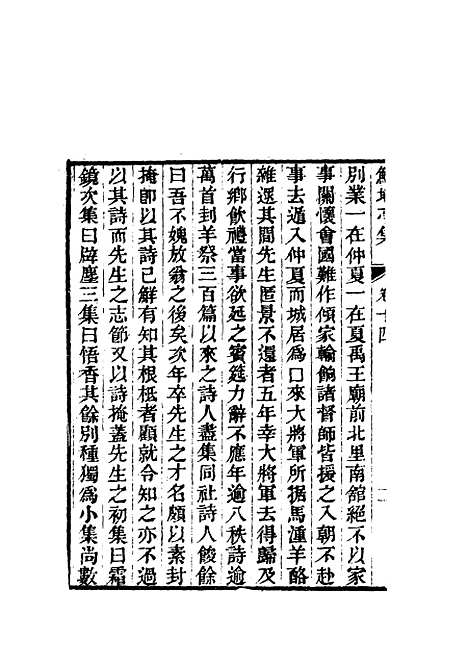 鮚埼亭集 卷十四
別業一在仲夏一在夏禹王廟前北里南館絕不以家
事關懷會國難作傾家輸餉諸督師皆援之入朝不赴
事去遁入仲夏而城居爲口來大將軍所据馬湩羊酪
雜遝其間先生匿景不還者五年幸大將軍去得歸及
行鄉飲禮當事欲延之賓筵力辭不應年逾八秩詩逾
萬首封羊祭三百篇以來之詩人盡集同社詩人餕餘
曰吾不媿放翁之後矣次年卒先生之才名頗以素封
掩卽以其詩已鮮有知其根柢者顧就令知之亦不過
以其詩而先生之志節又以詩掩蓋先生之初集曰霜
鏡次集曰辟塵三集曰悟香其餘別種獨爲小集尚數